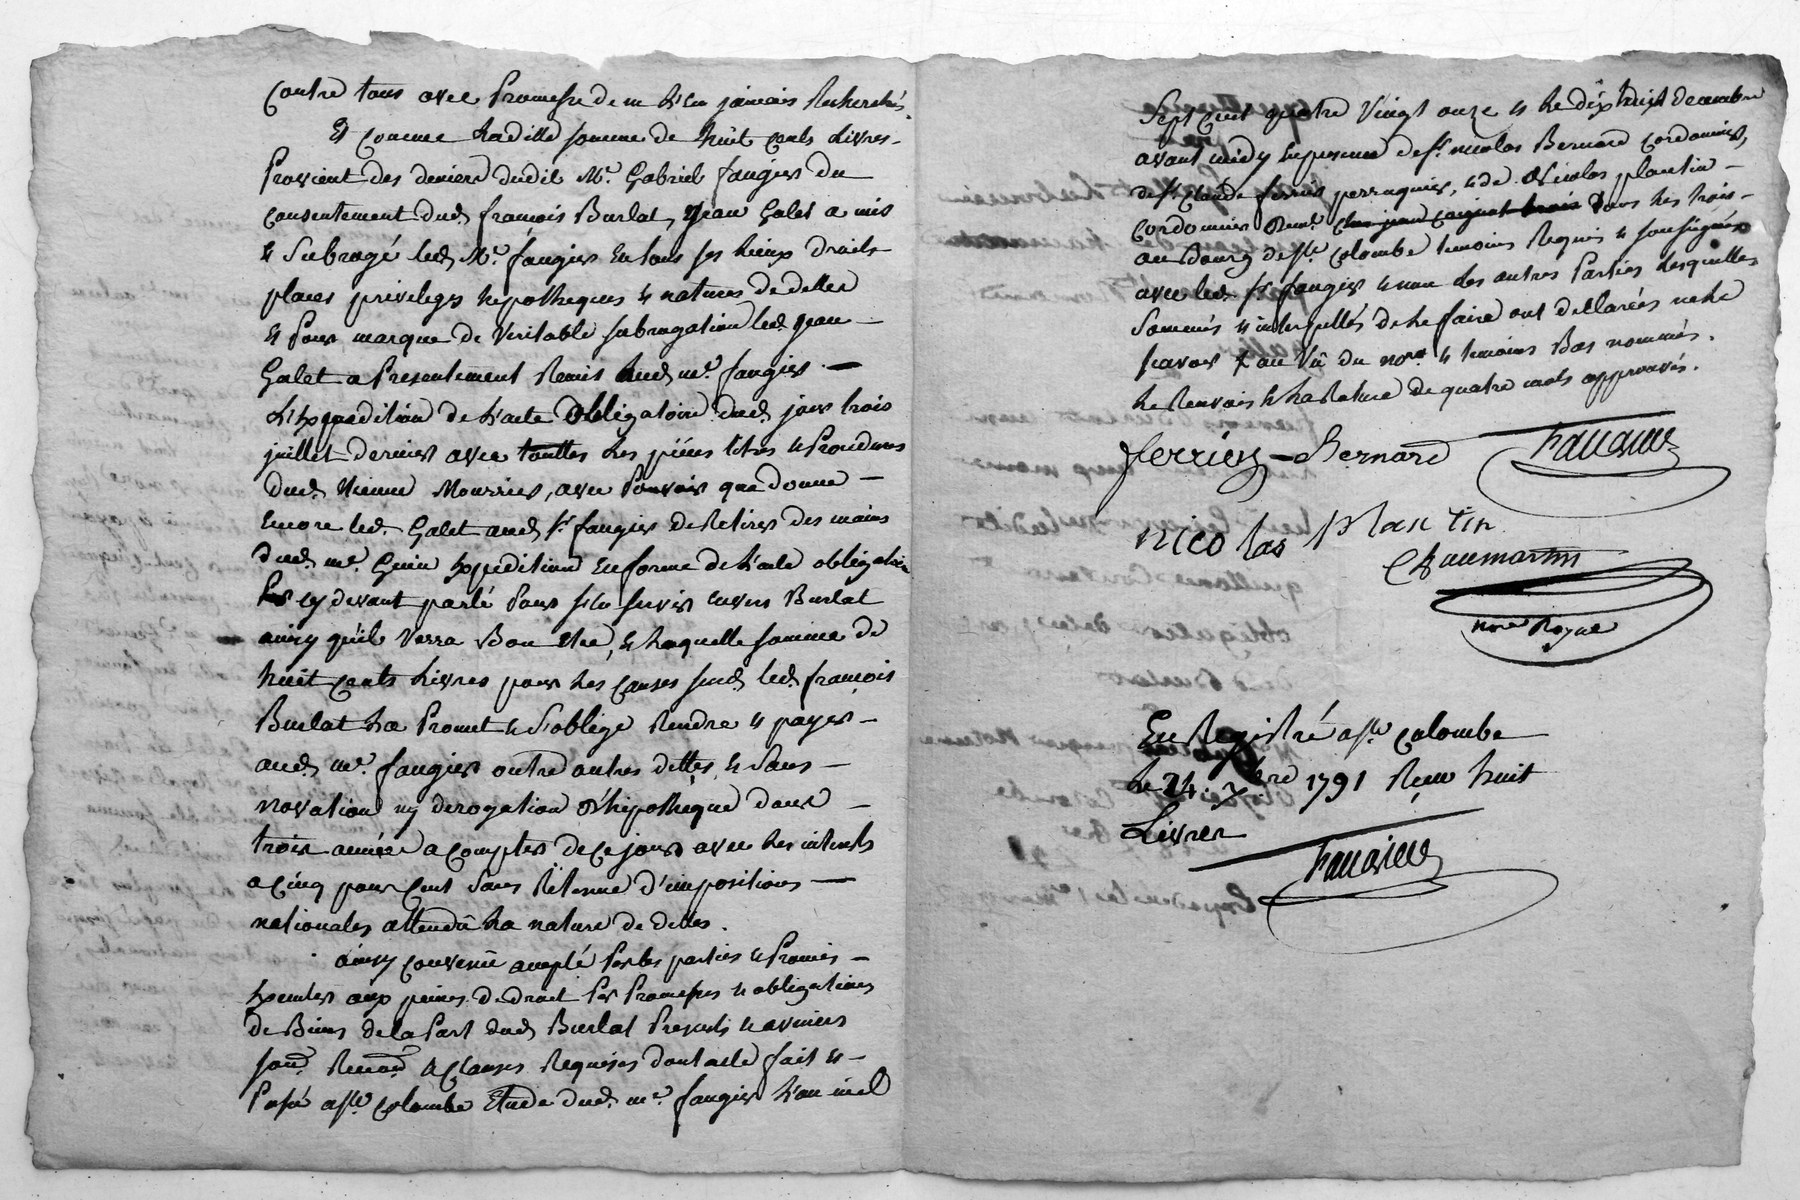 Contre tous avec Promesse de ne L'en jamais Rechercher,
Et comme Laditte somme de huit cents Livres
Provient des deniers dudit Mr. Gabriel faugier du
consentement dud. françois Burlat, Jean Galet a mis
& Subrogé led. Mr. faugier En tous ses Lieux Droits
places privileges hypotheques & natures de dettes
& Pour marque de Veritable subrogation led. Jean
Galet a Presentement Remis aud. mr. faugier
L'Expedition de L'acte Obligatoire dud. jour trois
juillet dernier avec touttes Les pièces titres & Procedures
dud. Mourrier, avec Pouvoir que donne
Encore led. Galet aud. Sr. faugier de Retirer des mains
dud. mr. Expédition En forme de L'acte obligatoire
cy devant parlé Pour s'en servir envers Burlat
ainsy qu'il verra Bon Etre, & Laquelle somme de
huit cents Livres pour Les causes susd. led. françois
Burlat La Promet & S'oblige Rendre & payer
aud. mr. faugier outre autres dettes & Sans
novation ny derogation d'hipothèque dans
trois année a compter de ce jour avec Les interets
a cinq pour cent sans Retenue d'impositions
nationales attendû La nature de dettes.
ainsy convenû accepté Par Les parties & Promis
aux peines de droit Par Promesses & obligations
de Biens de la Part dud. Burlat Presents & avenirs
soum. Renon. & Clauses Requises dont acte fait &
Passé a Ste. Colombe Etude dud. mr. faugier L'an mil
Sept cent quatre Vingt onze & Le dix huit decembre
avant midy En presence de Sr. nicolas Bernard Cordonnier,
de Sr. Claude ferrier perruquier, & de Nicolas plantin
cordonnier tous Les trois
au Bourg de Ste. Colombe temoins Requis & soussignés
avec led. Sr. faugier & non Les autres Parties Lesquelles
Sommés & interpellés de Le faire ont dellarées ne Le
scavoir & au Vû du nore. & temoins Bas nommés.
Le Renvois & La Rature de quatre mots approuvés.
ferrier Bernard
nicolas Plantin
Chaumartin
nore Royal
En Registré a Ste Colombe
Le 24. Xbre 1791 Reçu huit
Livres